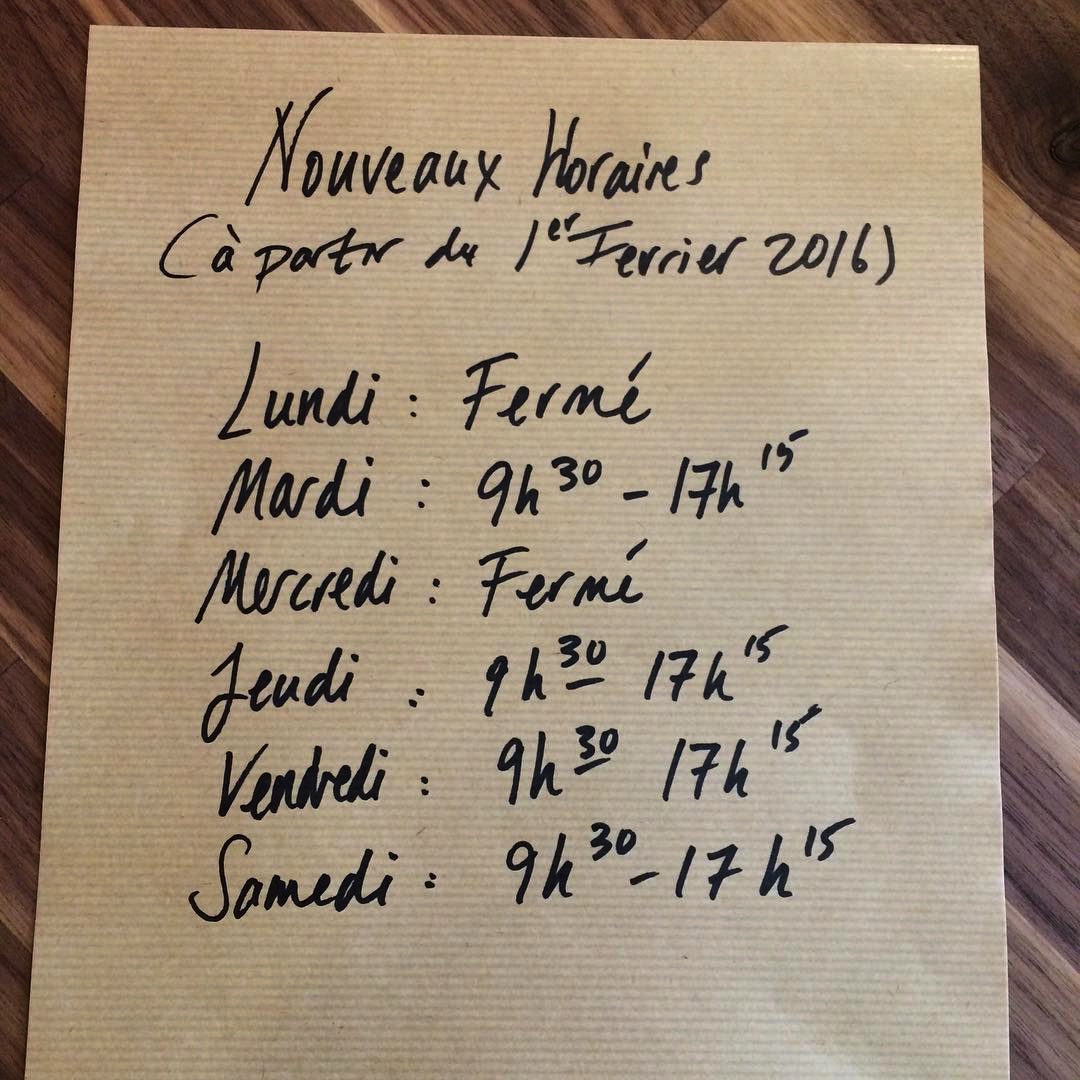 Nouveaux Horaires
(à partir du 1er Ferrier 2016)
Lundi : Fermé
Mardi : 9h30 - 17h15
Mercredi : Fermé
Jeudi : 9h30 - 17h15
Vendredi : 9h30 - 17h15
Samedi : 9h30 - 17h15